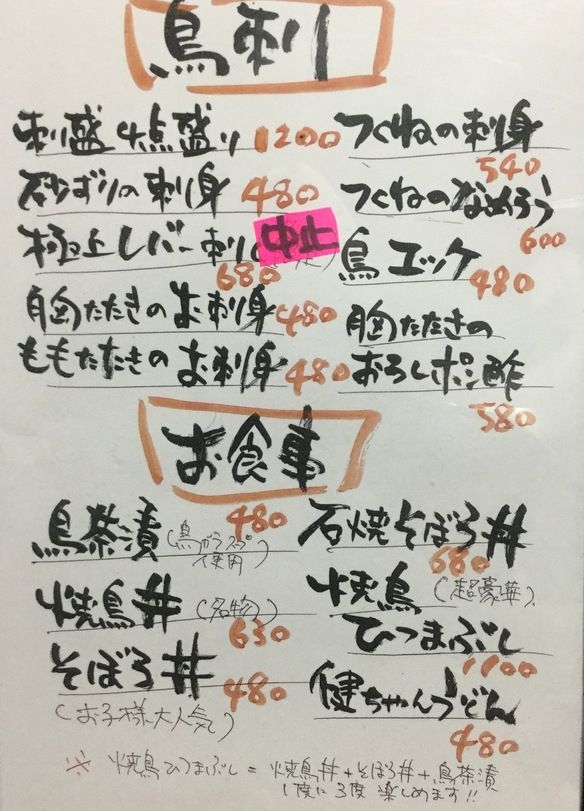 鳥刺り
刺り盛4点盛り 1200
砂ずりの刺身 480
極上レバー刺り 中止
680
胸たたきのお刺身 480
ももたたきのお刺身 480
つくねの刺身
540
つくねのなめろう
600
鳥エッケ
480
胸たたきの
おろしポン酢
580
お食事
鳥茶漬 480
(鳥ガラスープ
使用)
焼鳥丼 (名物)
630
そぼろ丼
480
(お子様大人気)
石焼そぼろ丼
680
焼鳥 (超豪華)
ひつまぶし
1100
健ちゃんうどん
480
※ 焼鳥ひつまぶし = 焼鳥丼+そぼろ丼+鳥茶漬
1度に3度楽しめます!!